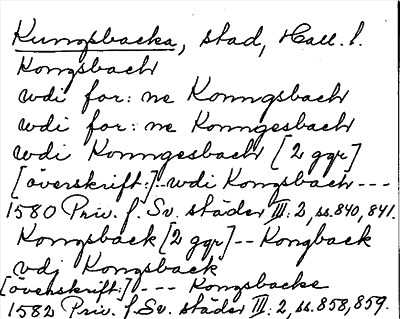 Kungsbacka, stad, Hall. l.
Kongsbach
wdi for: ne Konngsbach
wdi for: ne Konngesbach
wdi Konngesbach [2 ggr]
[överskrift:] wdi Kongsbach ---
1580 Priv. f. Sv. städer III: 2, ss. 840, 841.
Kongsback [2 ggr] -- Kongback
vdj Kongsback
[överskrift:] --- Kongsbacke
1582 Priv. f. Sv. städer III: 2, ss. 858, 859.